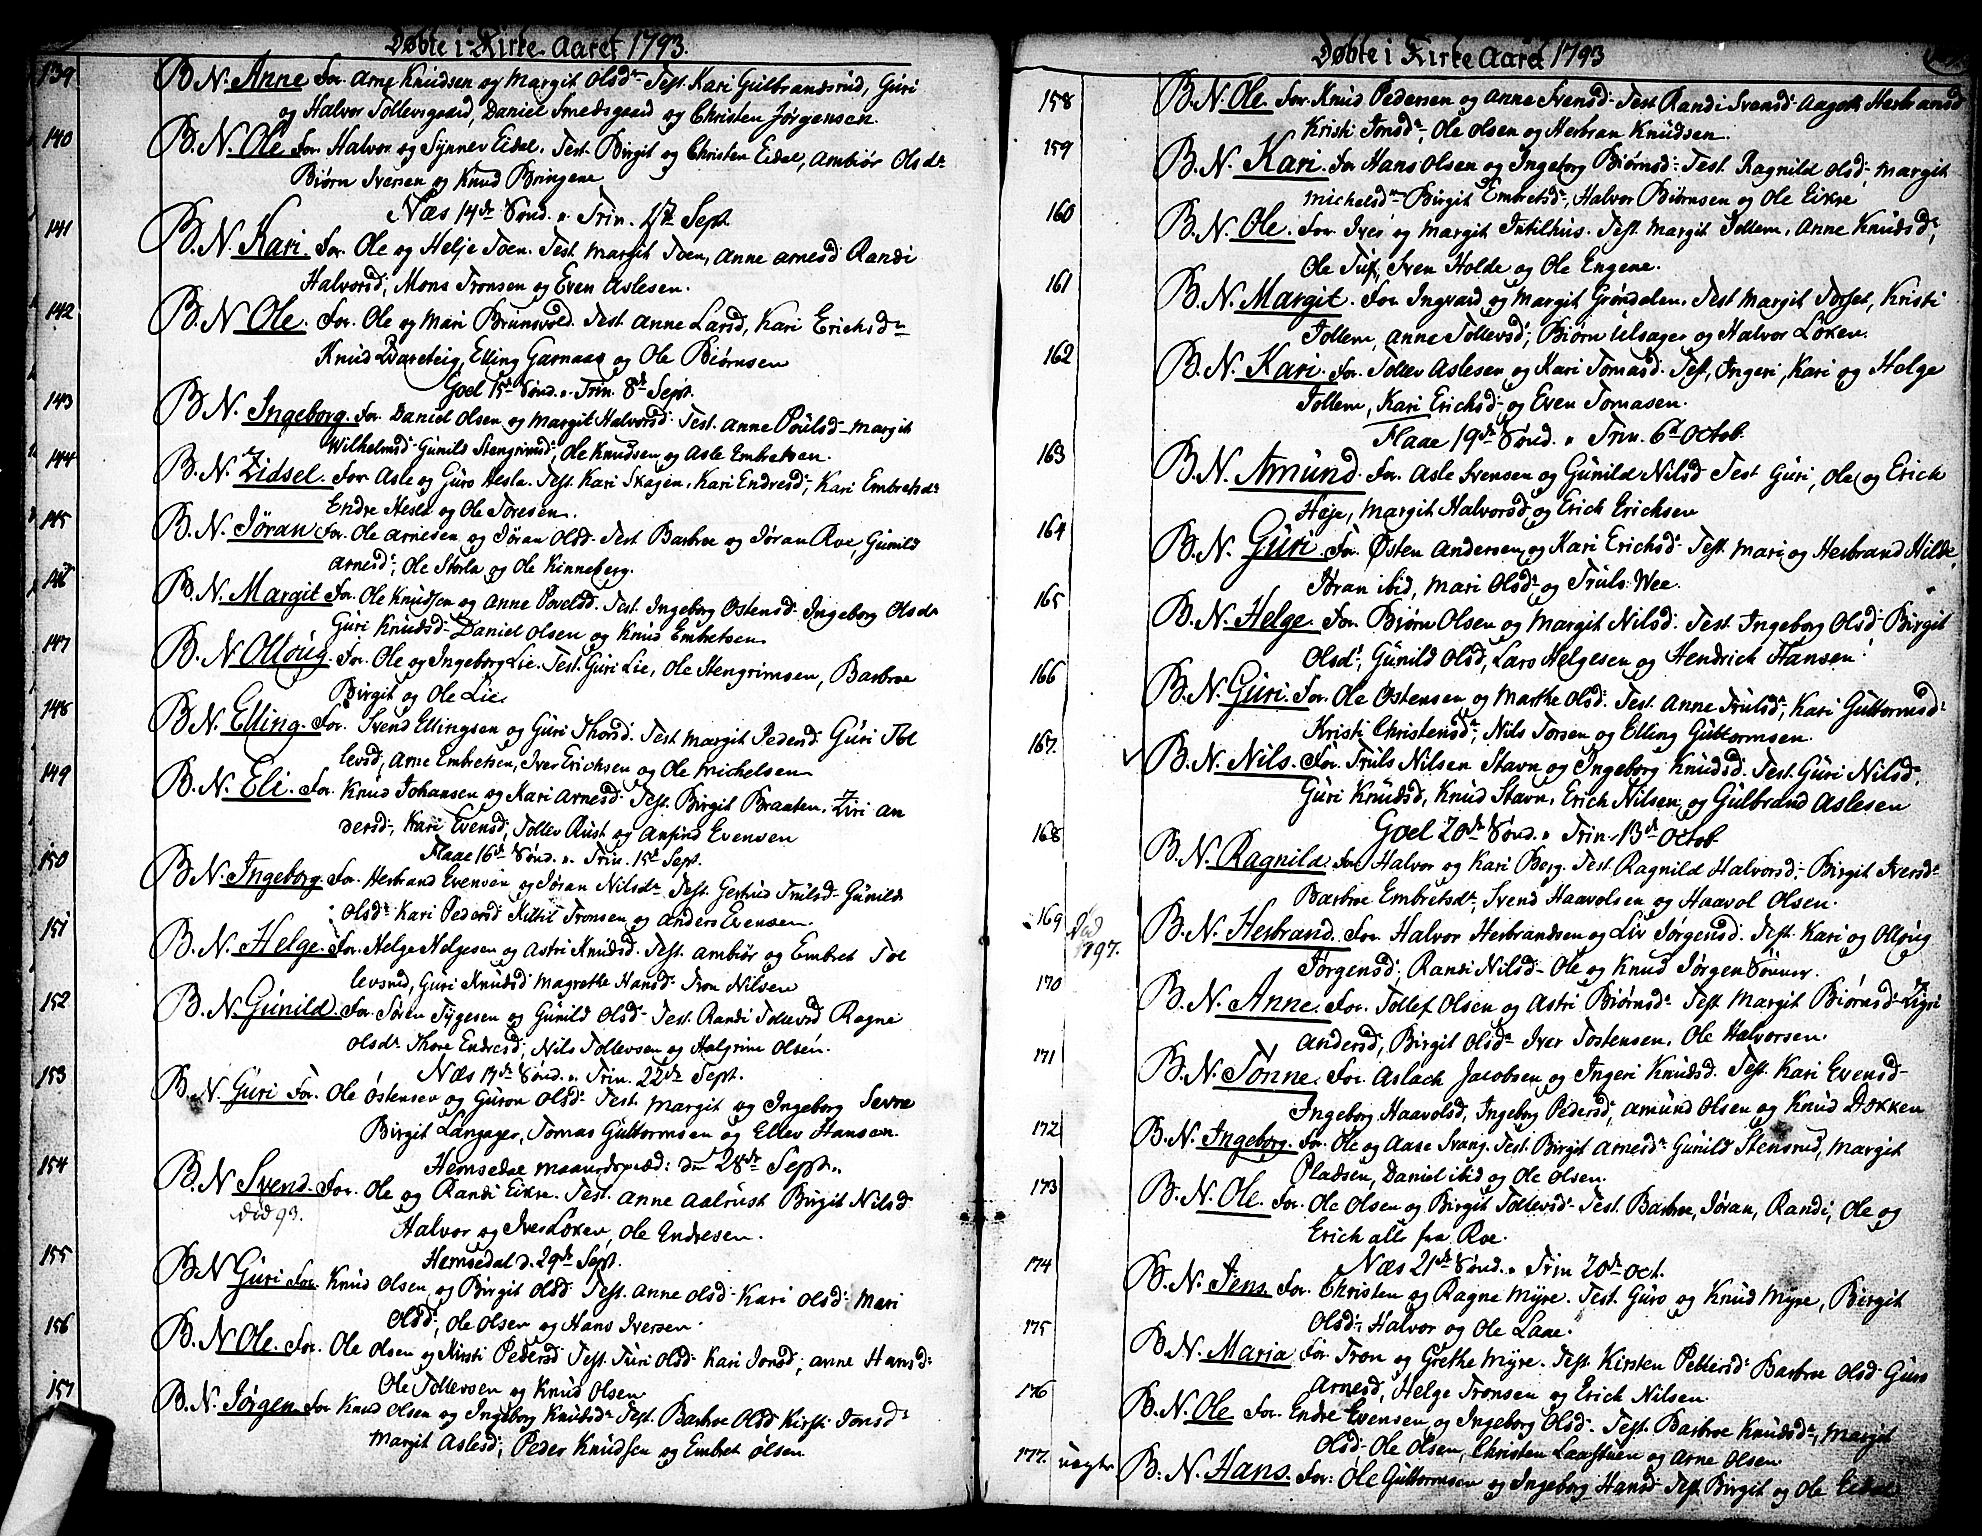 Døbte i Kirke Aaret 1793.
139 B. N. Anne For. Arne Knudsen og Margit Olsd. Test. Kari Gulbrandsrud, Guri
og Halvor Tollevsgaard, Daniel Smedsgaard og Christen Jørgensen.
140 B. N. Ole For. Halvor og Synnev Eidal. Test. Birgit og Christen Eidal, Ambiør Olsdr
Biørn Iversen og Knud Bringene
Næs 14de Sønd. p. Trin. Sept.
141 B. N. Kari. For. Ole og Helje Toen. Test. Margit Toen, Anne Arnesd Randi
Halvorsd, Mons Tronsen og Even Aslesen.
142 B. N. Ole. For. Ole og Mari Brunsvold. Test. Anne Larsd, Kari Erichsdr
Knud Qvarteig, Elling Garnaas og Ole Biørnsen
Goel 15de Sønd. p. Trin. 8de Sept.
143 B. N. Ingeborg. For. Daniel Olsen og Margit Halvorsd. Test. Anne Poulsd Margit
Wilhelmsd Gunild Stengrimsd, Ole Knudsen og Asle Embretsen.
144 B. N. Zidsel. For. Asle og Guro Hesla. Test. Kari Skagen, Kari Endresd, Kari Embretsdr
Endre Hesla og Ole Toresen.
145 B. N. Jøran For. Ole Arnesen og Jøran Olsd. Test. Barbroe og Jøran Roe, Gunild
Arnesd, Ole Storla og Ole Kinneberg.
146 B. N. Margit For. Ole Knudsen og Anne Povelsd. Test. Ingeborg Ostensd. Ingeborg Olsdr
Guri Knudsd. Daniel Olsen og Knud Embretsen
147 B. N. Olloug. For. Ole og Ingeborg Lie. Test. Guri Lie, Ole Stengrimsen, Barbroe
Birgit og Ole Lie
148 B. N. Elling. For. Svend Ellingsen og Guri Thorsd. Test Margit Pedersd. Guri Tol
levsd, Arne Embretsen, Iver Erichsen og Ole Michelsen
149 B. N. Eli. For. Knud Johansen og Kari Arnesd. Test. Birgit Braaten. Ziri An
dersd, Kari Evensd, Tollev Rust og Anfind Evensen
Flaae 16de Sønd. p. Trin. 15de Sept.
150 B. N. Ingeborg For. Herbrand Evensen og Jøran Nilsdr Test. Gertrud Trulsd Gunild
Olsdr Kari Pedersd Kittil Tronsen og Anders Evensen
151 B. N. Helge. For. Helge Helgesen og Astri Knudsd. Test. Ambiør og Embret Tol
levsrud, Guri Knudsd Magrethe Hansd Tron Nilsen
152 B. N. Gunild For. Søren Tygesen og Gunild Olsd. Test. Randi Tollevsd Ragne
Olsdr Thore Endresd, Nils Tollevsen og Halgrim Olsen.
Næs 17de Sønd. p. Trin. 22de Sept.
153 B. N. Guri For. Ole Ostensen og Guron Olsd. Test. Margit og Ingeborg Sevre
Birgit Langager, Tomas Guttormsen og Ellev Hansen.
Hemsedae Maanedspræd: den 28de Sept.
154 B. N. Svend. For. Ole og Randi Eikre. Test. Anne Aalrust Birgit Nilsd
Død 93.
Halvor og Iver Løken, Ole Endresen.
Hemsedal d. 29de Sept.
155 B. N. Guri For. Knud Olsen, og Birgit Olsd. Test. Anne Olsd. Kari Olsd. Mari
Olsd, Ole Olsen og Hans Iversen.
156 B. N. Ole. For. Ole Olsen og Kirsti Pedersd Test. Turi Olsd. Kari Jonsd; Anne Hansd.
Ole Tollevsen og Knud Olsen
157 B. N. Jørgen For Knud Olsen og Ingeborg Knudsdr Test. Barbroe Olsd Kirsti Jonsdr
Margit Aslesd, Peder Knudsen og Embret Olsen
Døbte i Kirke Aaret 1793
158 B. N. Ole. For Knud Pedersen og Anne Svensd. Test Randi Svensd. Aagoth Herbransd
Kristi Jonsd. Ole Olsen og Herbran Knudsen.
159 B. N. Kari. For Hans Olsen og Ingeborg Biørnsd. Test. Ragnild Olsd, Margit
Michelsdr Birgit Embretsd, Halvor Biørnsen og Ole Eikre
160 B. N. Ole. For. Iver og Margit Intilhus. Test. Margit Tollem, Anne Knudsd,
Ole Tuf, Sven Holde og Ole Engene.
161 B. N. Margit. For. Ingvard og Margit Grøndalen. Test Margit Torset, Kristi
Tollem, Anne Tollevsd, Biørn Ulsager og Halvor Løken.
162 B. N. Kari. For. Tollev Aslesen og Kari Tomasd. Test, Ingeri, Kari og Helge
Tollem, Kari Erichsd. og Even Tomasen.
Flaae 19de Sønd. p. Trin. 6d Octob.
163 B. N. Amund. For. Asle Svensen og Gunild Nilsd Test Guri, Ole og Erich
Høje, Margit Halvorsd og Erich Erichsen
164 B. N. Guri For. Østen Andersen og Kari Erichsd. Test. Mari og Herbrand Hilde
Jøran ibid, Mari Olsd. og Truls Wee.
165 B. N. Helge. For. Biørn Olsen og Margit Nilsd. Test. Ingeborg Olsd. Birgit
Olsd, Gunild Olsd, Lars Helgesen og Hendrich Hansen.
166 B. N. Guri. For. Ole Ostensen og Marthe Olsd. Test. Anne Trulsd, Kari Guttormsd.
Kristi Christensd, Nils Torsen og Elling Guttormsen.
167. B. N. Nils. For. Truls Nilsen Stavn og Ingeborg Knudsd. Test. Guri Nilsd,
Guri Knudsd, Knud Stavn, Erich Nilsen og Gulbrand Aslesen
Goel 20de Sønd. p. Trin. 13de Octob.
168 B. N. Ragnild. For Halvor og Kari Berg. Test. Ragnild Halvorsd, Birgit Iversdr
Barbroe Embretsdr, Svend Haavolsen og Haavol Olsen.
169 Død 1797. B. N. Herbrand. For. Halvor Herbrandsen og Liv Jørgensd. Test. Kari og Olloug
Jørgensd, Randi Nilsd. Ole og Knud Jørgensønner.
170 B. N. Anne. For. Tollef Olsen og Astri Biørnsdr Test. Margit Biørnsd.
Andersd, Birgit Olsdr Iver Tostensen. Ole Halvorsen.
171 B. N. Tønne. For. Aslach Jacobsen og Ingeri Knudsd. Test. Kari Evensd.
Ingeborg Haavolsd, Ingeborg Pedersd, Amund Olsen og Knud Dokken
172 B. N. Ingeborg. For. Ole og Aase Svang. Test. Birgit Arnesdr Gunild Stensrud, Margit
Pladsen, Daniel ibid og Ole Olsen.
173 B. N. Ole. For. Ole Olsen og Birgit Tollevsd. Test. Barbroe, Jøran, Randi, Ole og
Erich alle fra Roe.
Næs 21de Sønd. p. Trin 20de Oct.
174 B. N. Jens. For. Christen og Ragne Myre. Test. Guro og Knud Myre, Birgit
Olsd, Halvor og Ole Laae.
175 B. N. Maria For Tron og Grethe Myre. Test. Kirsten Pettersd. Barbroe Olsd Guro
Arnesd, Helge Tronsen og Erich Nilsen.
176 B. N. Ole For. Endre Evensen og Ingeborg Olsd. Test. Barbroe Knudsd, Margit
Olsd. Ole Olsen, Christen Laastuen og Arne Olsen
177. uægte B. N. Hans. For: Ole Guttormsen og Ingeborg Hansd Test. Birgit og Ole Eidal